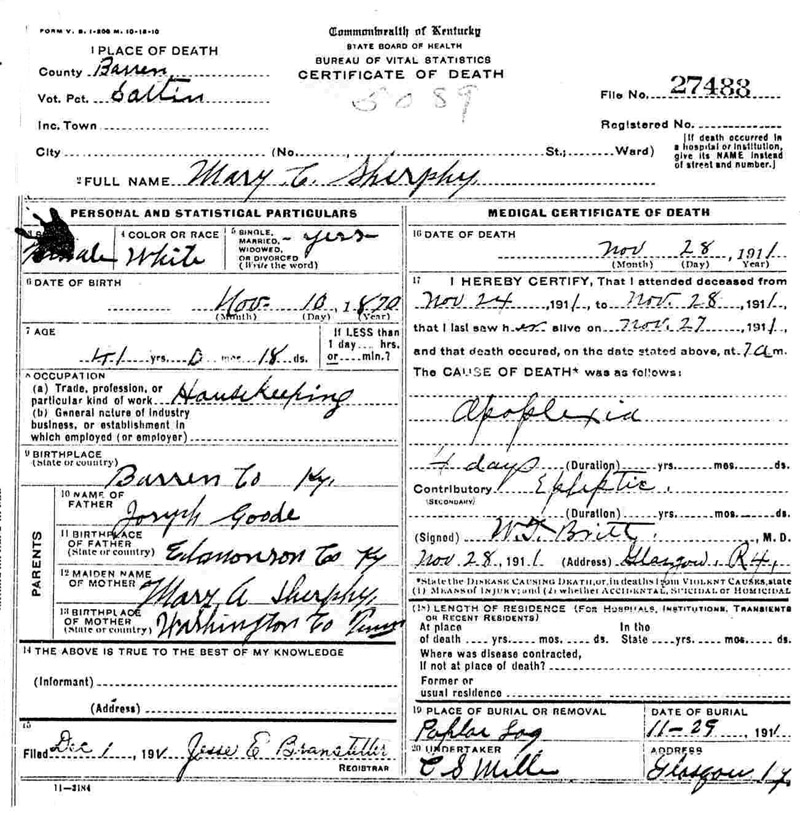 FORM V. S. 1-200 M. 10-18-10
Commonwealth of Kentucky
STATE BOARD OF HEALTH
BUREAU OF VITAL STATISTICS
CERTIFICATE OF DEATH
5089
1 PLACE OF DEATH
County Barren
Vot. Pct.
Inc. Town
City (No. , St.; Ward)
File No. 27488
Registered No.
[If death occurred in
a hospital or institution,
give its NAME instead
of street and number.]
2 FULL NAME Mary C. Sherphy
PERSONAL AND STATISTICAL PARTICULARS
Female
4 COLOR OR RACE
White
5 SINGLE,
MARRIED,
WIDOWED,
OR DIVORCED
(Write the word)
yes
6 DATE OF BIRTH
Nov. 10, 1870
(Month) (Day) (Year)
7 AGE
41 yrs. 0 mos. 18 ds.
If LESS than
1 day hrs.
or min.?
8 OCCUPATION
(a) Trade, profession, or
particular kind of work Housekeeping
(b) General nature of industry
business, or establishment in
which employed (or employer)
9 BIRTHPLACE
(State or country)
Barren Co Ky.
PARENTS
10 NAME OF
FATHER
Joseph Goode
11 BIRTHPLACE
OF FATHER
(State or country)
Edmonson Co Ky
12 MAIDEN NAME
OF MOTHER
Mary A Sherphy
13 BIRTHPLACE
OF MOTHER
(State or country)
Washington Co Tenn
14 THE ABOVE IS TRUE TO THE BEST OF MY KNOWLEDGE
(Informant)
(Address)
15
Filed Dec 1, 1911 Jesse E Branstetter
REGISTRAR
11-3184
MEDICAL CERTIFICATE OF DEATH
16 DATE OF DEATH
Nov 28, 1911
(Month) (Day) (Year)
17 I HEREBY CERTIFY, That I attended deceased from
Nov 24, 1911, to Nov. 28, 1911,
that I last saw her alive on Nov. 27, 1911,
and that death occured, on the date stated above, at 7 a m.
The CAUSE OF DEATH* was as follows:
Apoplexia
4 days (Duration) yrs. mos. ds.
Contributory Epleptic.
(SECONDARY)
(Duration) yrs. mos. ds.
(Signed) W.T. Britt, M. D.
Nov. 28, 1911 (Address) Glasgow, R4,
*State the DISEASE CAUSING DEATH, or, in deaths from VIOLENT CAUSES, state
(1) MEANS OF INJURY; and (2) whether ACCIDENTAL, SUICIDAL OR HOMICIDAL
(18) LENGTH OF RESIDENCE (FOR HOSPITALS, INSTITUTIONS, TRANSIENTS
OR RECENT RESIDENTS)
At place
of death yrs. mos. ds.
In the
State yrs. mos. ds.
Where was disease contracted,
If not at place of death?
Former or
usual residence
19 PLACE OF BURIAL OR REMOVAL
Poplar Log
DATE OF BURIAL
11-29, 1911
20 UNDERTAKER
C S Mille
ADDRESS
Glasgow Ky